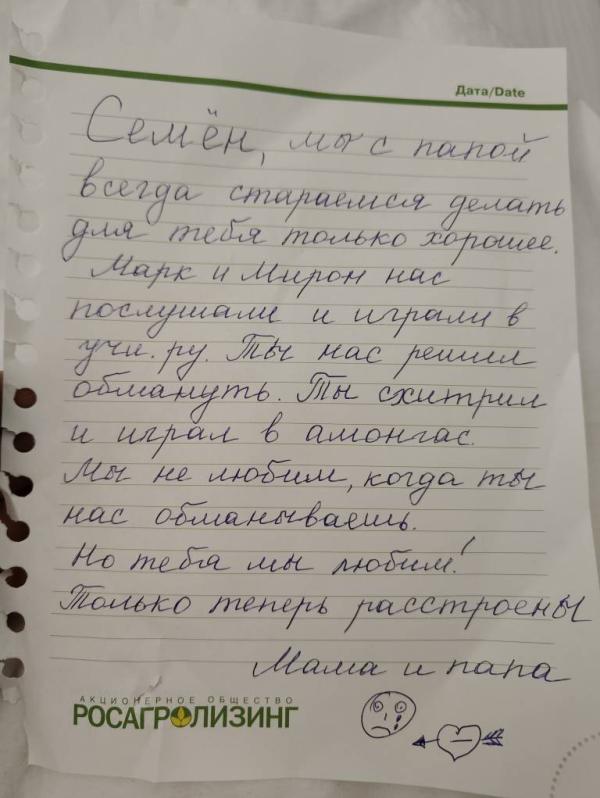 Дата/Date
Семён, мы с папой
всегда стараемся делать
для тебя только хорошее.
Марк и Мирон нас
послушали и играли в
учи.ру. Ты нас решил
обмануть. Ты схитрил
и играл в амонгас.
Мы не любим, когда ты
нас обманываешь.
Но тебя мы любим!
Только теперь расстроены
Мама и папа
АКЦИОНЕРНОЕ ОБЩЕСТВО
РОСАГРОЛИЗИНГ